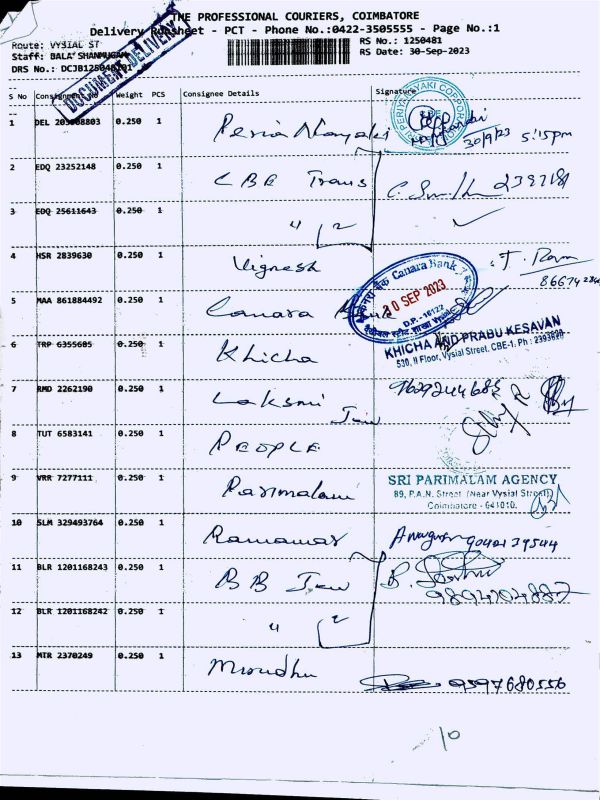 THE PROFESSIONAL COURIERS, COIMBATORE
Delivery Runsheet - PCT - Phone No.:0422-3505555 - Page No.:1
Route: VYSIAL ST
RS No.: 1250481
Staff: BALA SHANMUGAM
RS Date: 30-Sep-2023
DRS No.:
DOCUMENT DELIVERY
S No Consignment No Weight PCS Consignee Details Signature
1 DEL 0.250 1 Peria Nayaki 30/9/23 5:15pm
2 EDQ 23252148 0.250 1 CBE Trans
3 EDQ 25611643 0.250 1 " 2
4 HSR 2839630 0.250 1 Vignesh T. Ram
5 MAA 861884492 0.250 1 Canara Bank
Canara Bank
30 SEP 2023
6 TRP 6355685 0.250 1 Khicha
KHICHA AND PRABU KESAVAN
530, II Floor, Vysial Street, CBE-1. Ph : 2393620
7 RMD 2262190 0.250 1 Laksmi Jew 9629244685
8 TUT 6583141 0.250 1 PEOPLE
9 VRR 7277111 0.250 1 Parimalam
SRI PARIMALAM AGENCY
89, P.A.N. Street (Near Vysial Street)
Coimbatore - 641010.
10 SLM 329493764 0.250 1 Ramawar
11 BLR 1201168243 0.250 1 BB Jew
12 BLR 1201168242 0.250 1 " 2
13 MTR 2370249 0.250 1 Mrudhu 9597680556
10